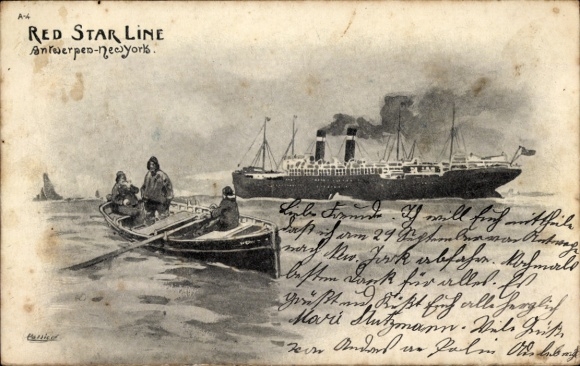 A-2
RED STAR LINE
Antwerpen-New York.
Liebe Freunde. Ich will Euch mittheilen
daß ich am 29 September von Antwerpen
nach New. York abfahre. Nochmals
besten Dank für alles. Es
Grüßt und Küßt Euch alle herzlich
Marie Stutzmann. Viele Grüße
von Andres an
Cassiers